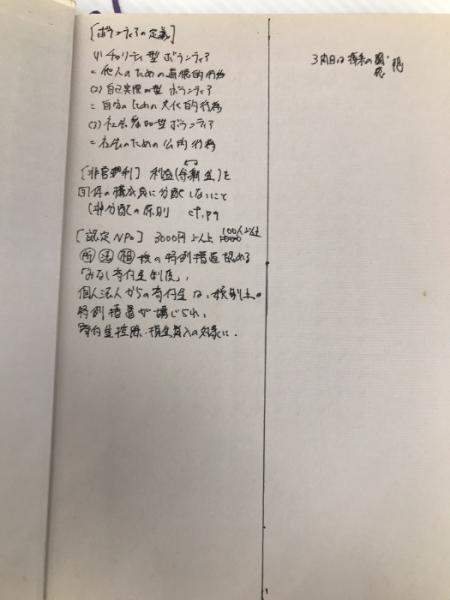 [ボランティアの定義]
(1) チャリティ型 ボランティア
= 他人のための 直接的行為
(2) 自己実現型 ボランティア
= 自分のための 文化的行為
(3) 社会参加型 ボランティア
= 社会のための 公的行為
[非営利] 利益(余剰金)を
団体の構成員に分配しないこと
(非分配の原則 cf. p9
[認定NPO] 3000円以上 100人以上
所 法 相 税の特例措置認める
「みなし寄付金制度」
個人法人からの寄付金は、税制上の
特例措置が講じられ、
寄付金控除・損金算入の対象に.
3内目は 将来の